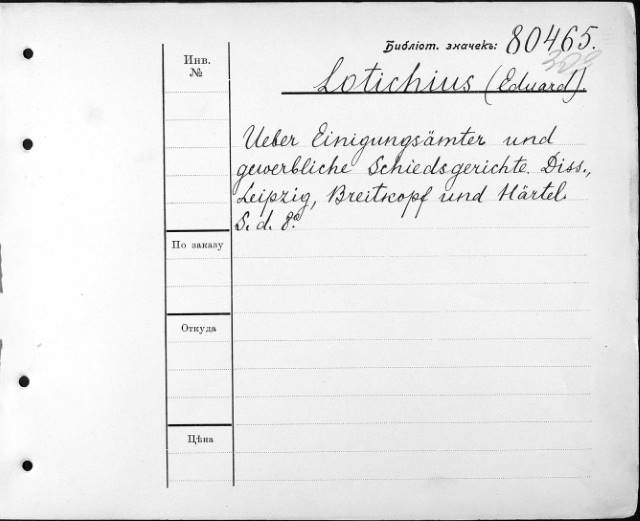 Библіот. значекъ: 80465.
Инв.
№
Lotichius (Eduard).
Ueber Einigungsämter und
gewerbliche Schiedsgerichte. Diss.,
Leipzig, Breitkopf und Härtel.
S. d. 8º
По заказу
Откуда
Цѣна